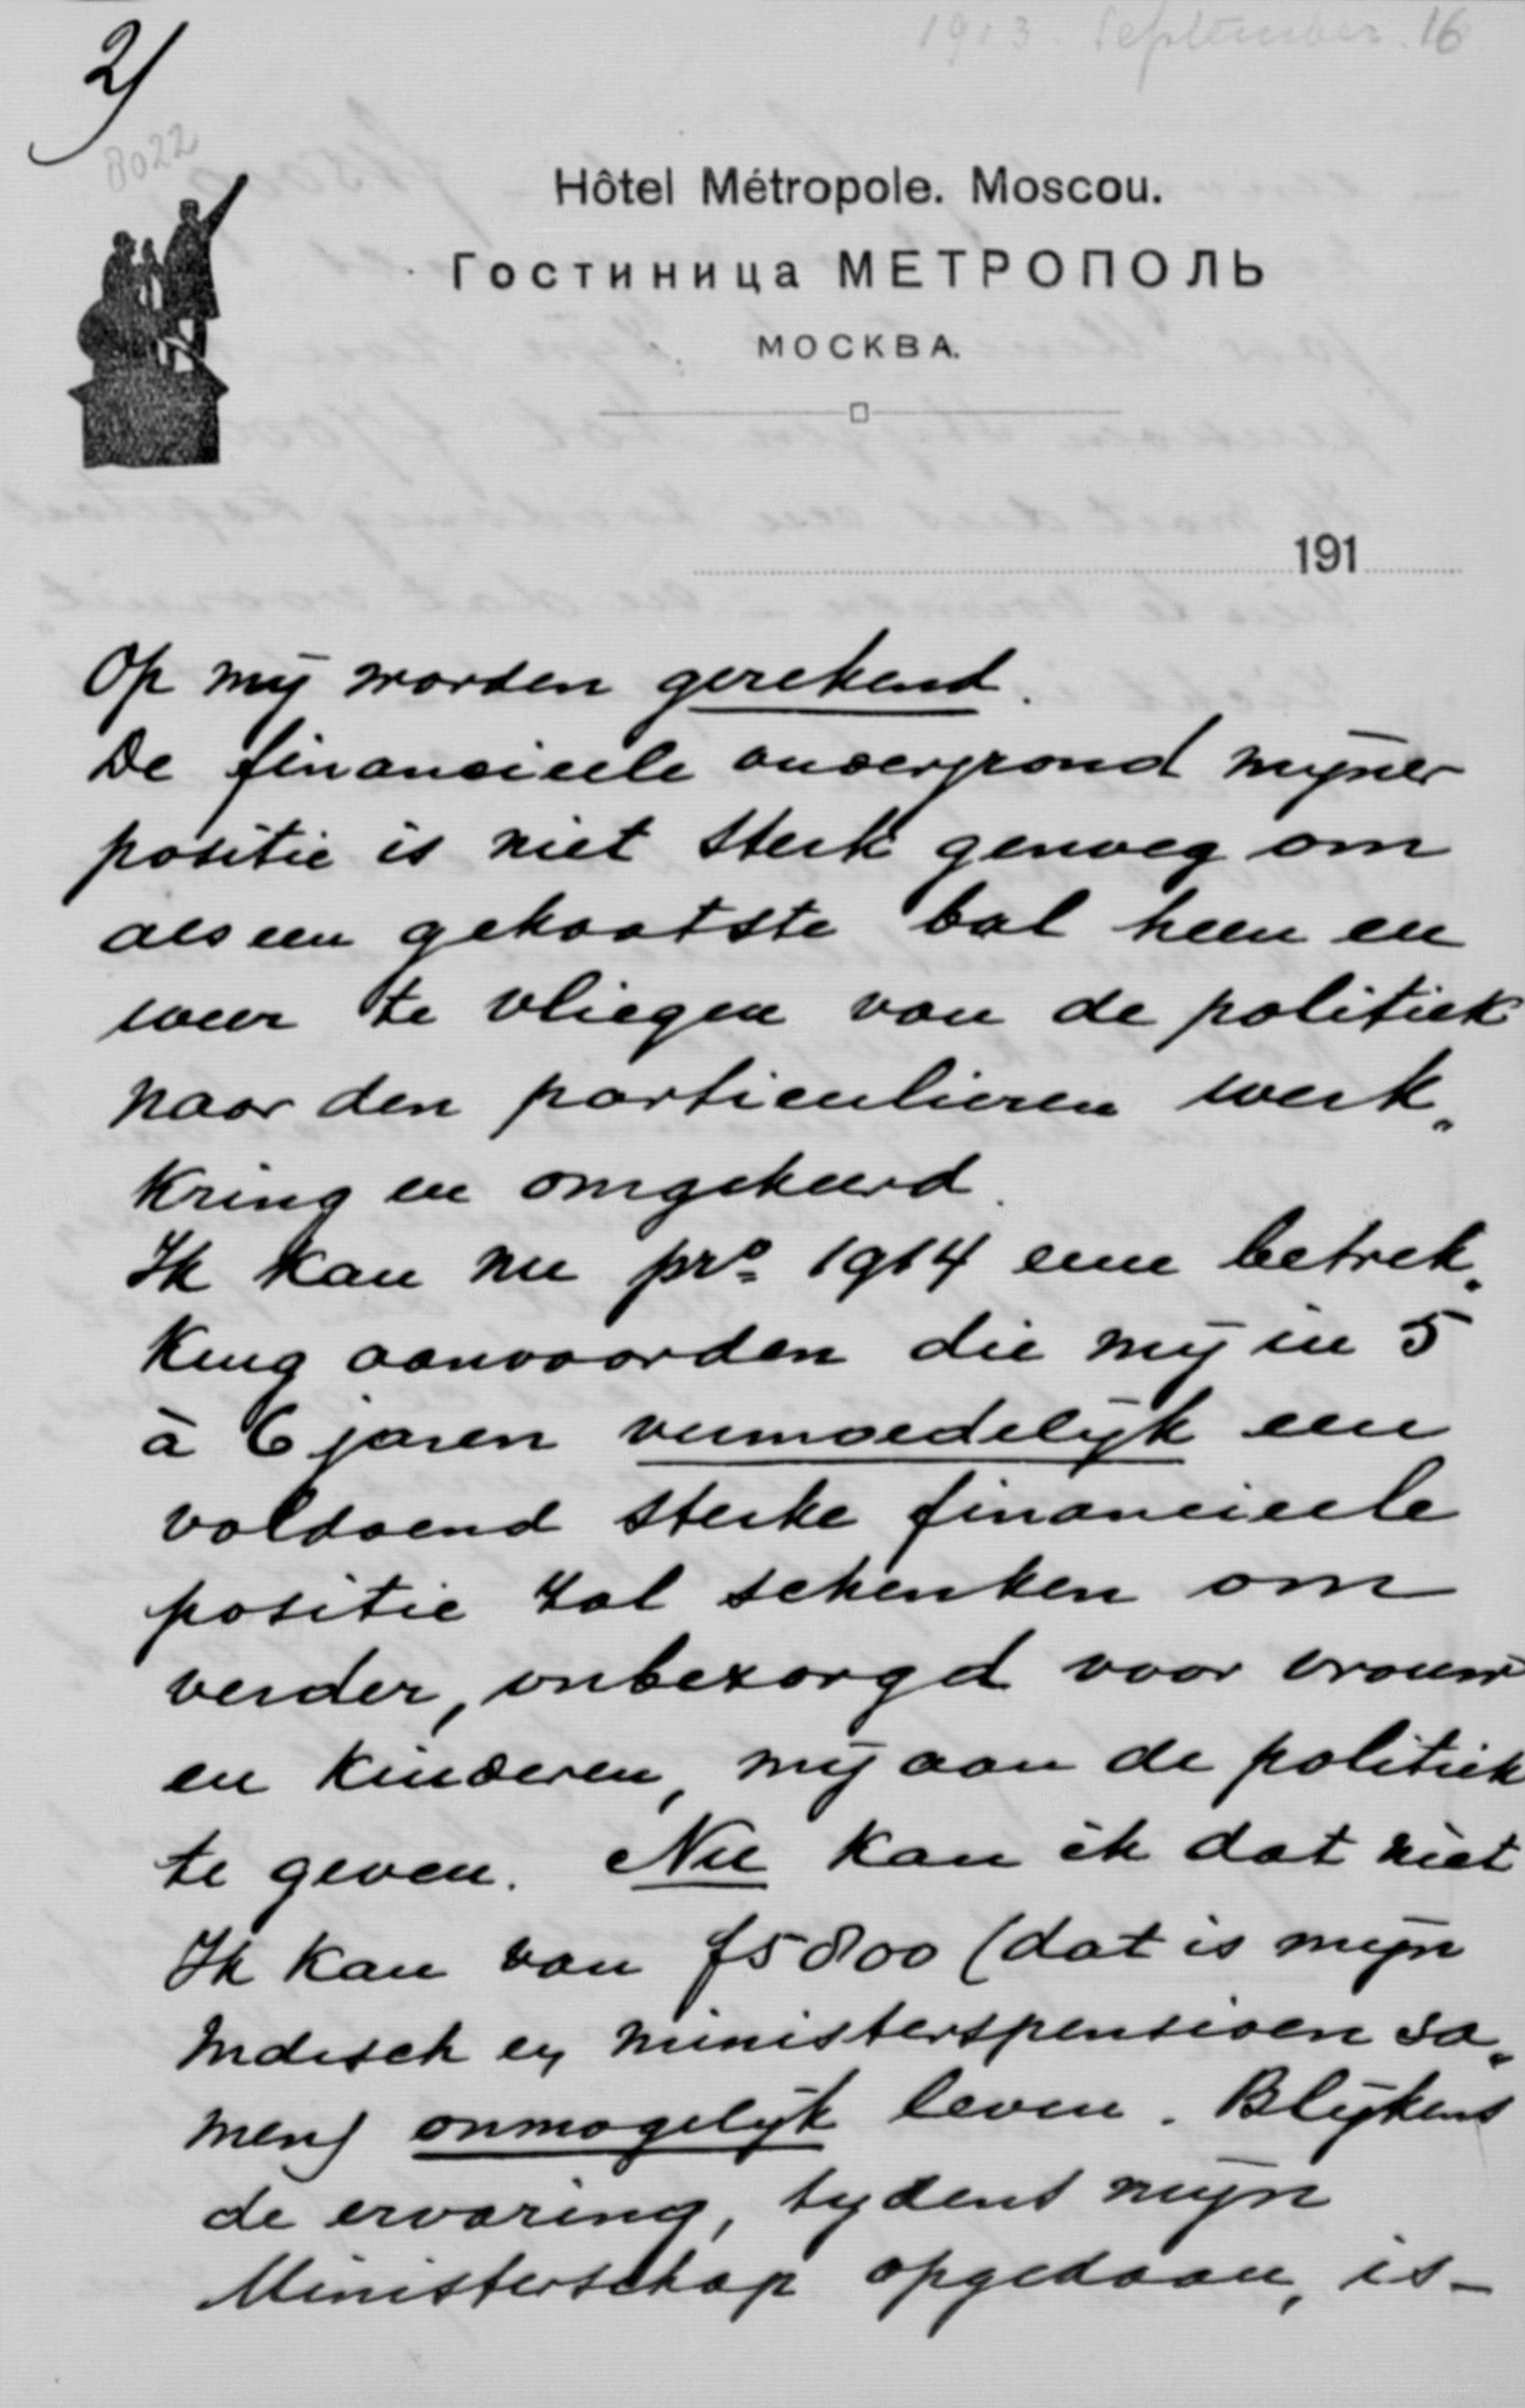 1913. September. 16
2/
8022
Hôtel Métropole. Moscou.
Гостиница МЕТРОПОЛЬ
МОСКВА.
191
Op mij worden gerekend.
De financieele ondergrond mijner
positie is niet sterk genoeg om
als een gekaatste bal heen en
weer te vliegen van de politiek
naar den particulieren werk„
kring en omgekeerd.
Ik kan nu pro 1914 eene betrek„
king aanvaarden die mij in 5
à 6 jaren vermoedelijk een
voldoend sterke financieele
positie zal schenken om
verder, onbezorgd voor vrouw
en kinderen, mij aan de politiek
te geven. Nu kan ik dat niet
Ik kan van f5800 (dat is mijn
Indisch en ministerspensioen sa„
men) onmogelijk leven. Blijkens
de ervaring, tijdens mijn
Ministerschap opgedaan, is -